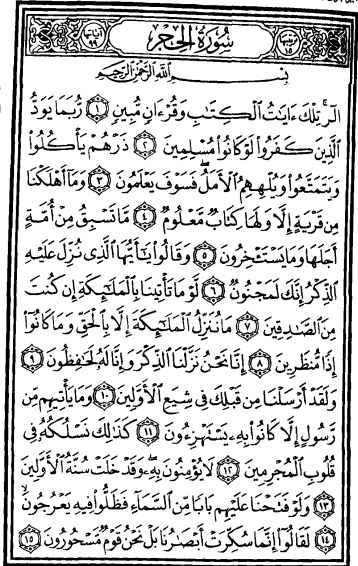 ترتيبها ١٥
سُورَةُ الحِجْرِ
آياتها ٩٩
بِسْمِ اللَّهِ الرَّحْمَٰنِ الرَّحِيمِ
الٓرۚ تِلْكَ ءَايَٰتُ ٱلْكِتَٰبِ وَقُرْءَانٍ مُّبِينٍ ١ رُّبَمَا يَوَدُّ
ٱلَّذِينَ كَفَرُوا۟ لَوْ كَانُوا۟ مُسْلِمِينَ ٢ ذَرْهُمْ يَأْكُلُوا۟
وَيَتَمَتَّعُوا۟ وَيُلْهِهِمُ ٱلْأَمَلُۖ فَسَوْفَ يَعْلَمُونَ ٣ وَمَآ أَهْلَكْنَا
مِن قَرْيَةٍ إِلَّا وَلَهَا كِتَابٌ مَّعْلُومٌ ٤ مَّا تَسْبِقُ مِنْ أُمَّةٍ
أَجَلَهَا وَمَا يَسْتَـْٔخِرُونَ ٥ وَقَالُوا۟ يَٰٓأَيُّهَا ٱلَّذِى نُزِّلَ عَلَيْهِ
ٱلذِّكْرُ إِنَّكَ لَمَجْنُونٌ ٦ لَّوْ مَا تَأْتِينَا بِٱلْمَلَٰٓئِكَةِ إِن كُنتَ
مِنَ ٱلصَّٰدِقِينَ ٧ مَا نُنَزِّلُ ٱلْمَلَٰٓئِكَةَ إِلَّا بِٱلْحَقِّ وَمَا كَانُوٓا۟
إِذًا مُّنظَرِينَ ٨ إِنَّا نَحْنُ نَزَّلْنَا ٱلذِّكْرَ وَإِنَّا لَهُۥ لَحَٰفِظُونَ ٩
وَلَقَدْ أَرْسَلْنَا مِن قَبْلِكَ فِى شِيَعِ ٱلْأَوَّلِينَ ١٠ وَمَا يَأْتِيهِم مِّن
رَّسُولٍ إِلَّا كَانُوا۟ بِهِۦ يَسْتَهْزِءُونَ ١١ كَذَٰلِكَ نَسْلُكُهُۥ فِى
قُلُوبِ ٱلْمُجْرِمِينَ ١٢ لَا يُؤْمِنُونَ بِهِۦۖ وَقَدْ خَلَتْ سُنَّةُ ٱلْأَوَّلِينَ
١٣ وَلَوْ فَتَحْنَا عَلَيْهِم بَابًا مِّنَ ٱلسَّمَآءِ فَظَلُّوا۟ فِيهِ يَعْرُجُونَۙ
١٤ لَقَالُوٓا۟ إِنَّمَا سُكِّرَتْ أَبْصَٰرُنَا بَلْ نَحْنُ قَوْمٌ مَّسْحُورُونَ ١٥